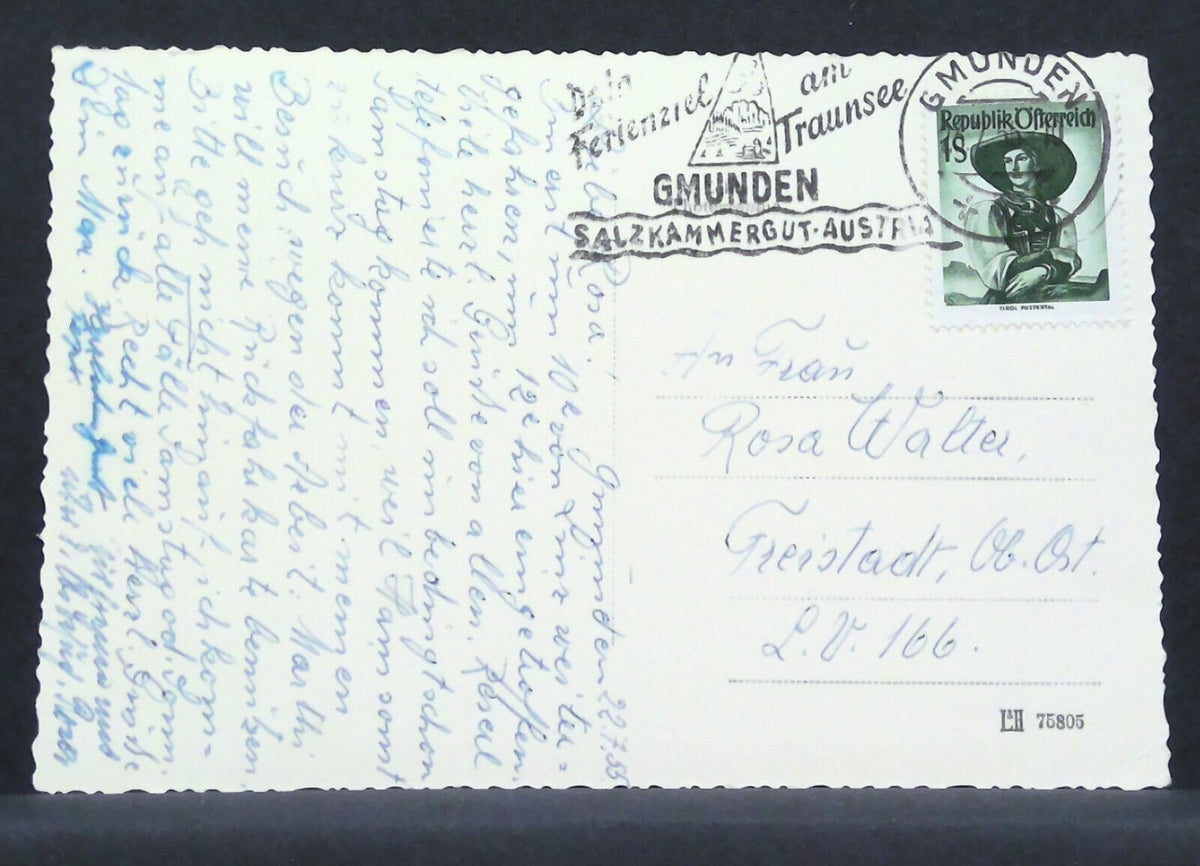 Dein
Ferienziel
am
Traunsee
GMUNDEN
SALZKAMMERGUT-AUSTRIA
GMUNDEN
Republik Österreich
1S
TIROL PUSTERTAL
Gmunden 22.7.55
Liebe Rosa,
Bin erst um 10h von Linz weiter=
gefahren, um 12h hier eingetroffen.
Viele herzl. Grüße von allen. Reserl
telefonierte ich soll unbedingt schon
Samstag kommen, weil Hans sonst
zu kurz kommt mit meinem
Besuch wegen der Arbeit. Marthi
will meine Rückfahrkarte benützen
Bitte geh nicht hinauf, ich komm-
me auf alle Fälle Samstag od. Sonn.
Recht viele herzl. Grüße
Dein
An Frau
Rosa Walter,
Freistadt, Ob. Öst.
L.V. 166.
L&H 75805